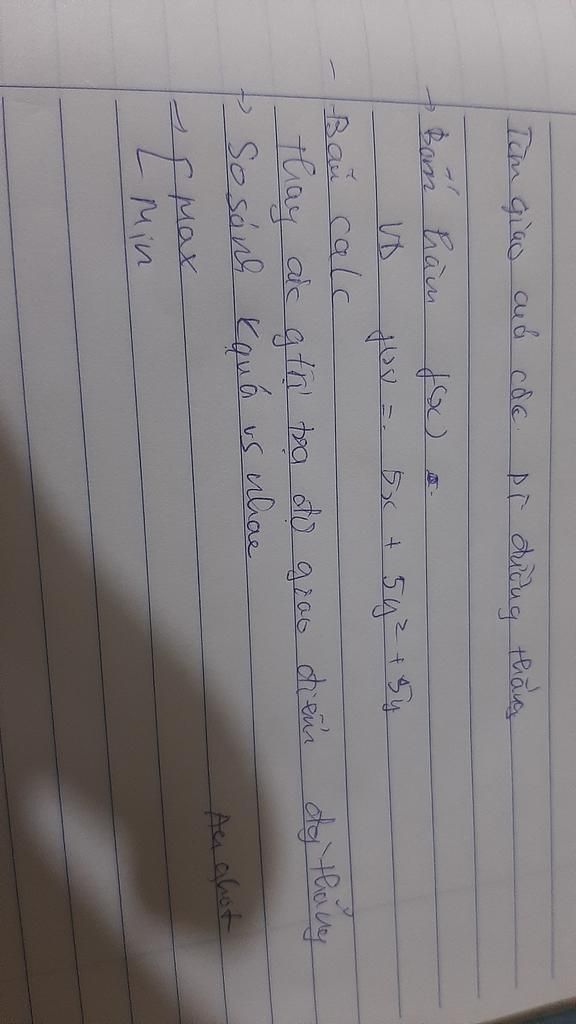 Tìm giao của các pt đường thẳng
→ Bấm hàm f(x) =
VD f(x) = 5x + 5y² + 5y
- Bấn calc
thay các gtrị tọa độ giao điểm đg thẳng
→ So sánh kquả vs nhau
→ [ Max
Min